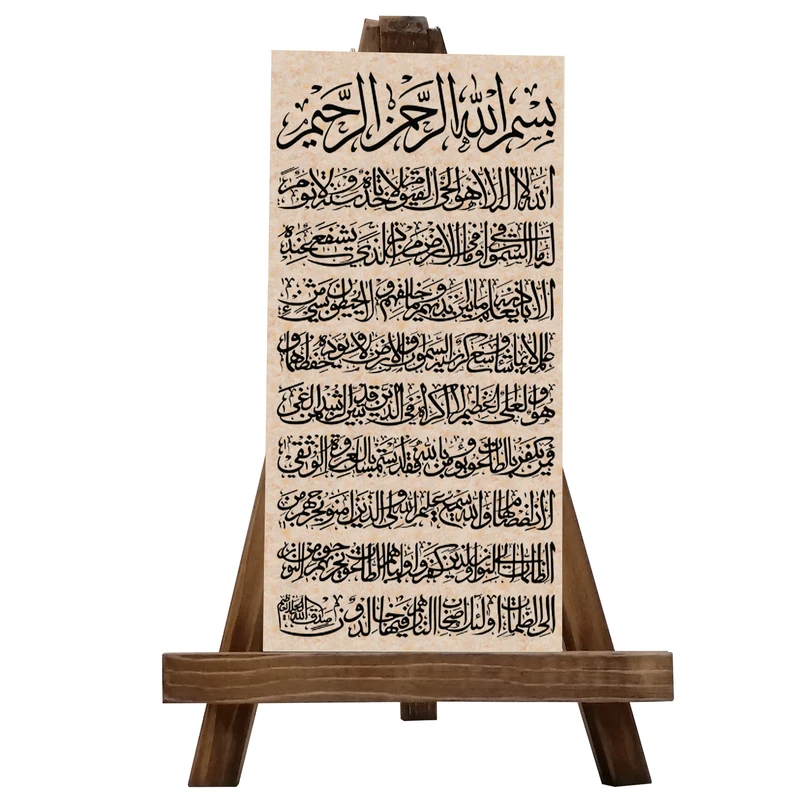 بسم الله الرحمن الرحيم
الله لا اله الا هو الحي القيوم لا تاخذه سنة ولا نوم
له ما في السموات وما في الارض من ذا الذي يشفع عنده
الا باذنه يعلم ما بين ايديهم وما خلفهم ولا يحيطون بشيء من
علمه الا بما شاء وسع كرسيه السموات والارض ولا يؤده حفظهما و
هو العلي العظيم لا اكراه في الدين قد تبين الرشد من الغي
فمن يكفر بالطاغوت ويؤمن بالله فقد استمسك بالعروة الوثقى
لا انفصام لها والله سميع عليم الله ولي الذين امنوا يخرجهم من
الظلمات الى النور والذين كفروا اولياؤهم الطاغوت يخرجونهم من النور
الى الظلمات اولئك اصحاب النار هم فيها خالدون صدق الله العلي العظيم